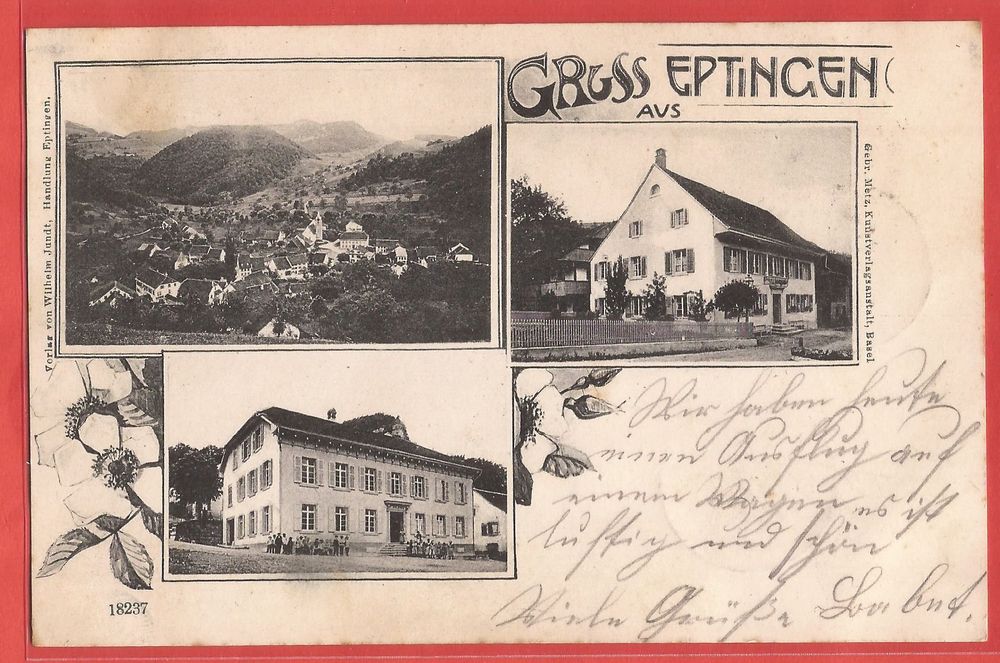 GRUSS
AUS
EPTINGEN
Verlag von Wilhelm Jundt, Handlung Eptingen.
Gebr. Metz, Kunstverlagsanstalt, Basel
Wir haben heute
einen Ausflug auf
einem Wagen es ist
luftig und schön
Viele Grüße
18237